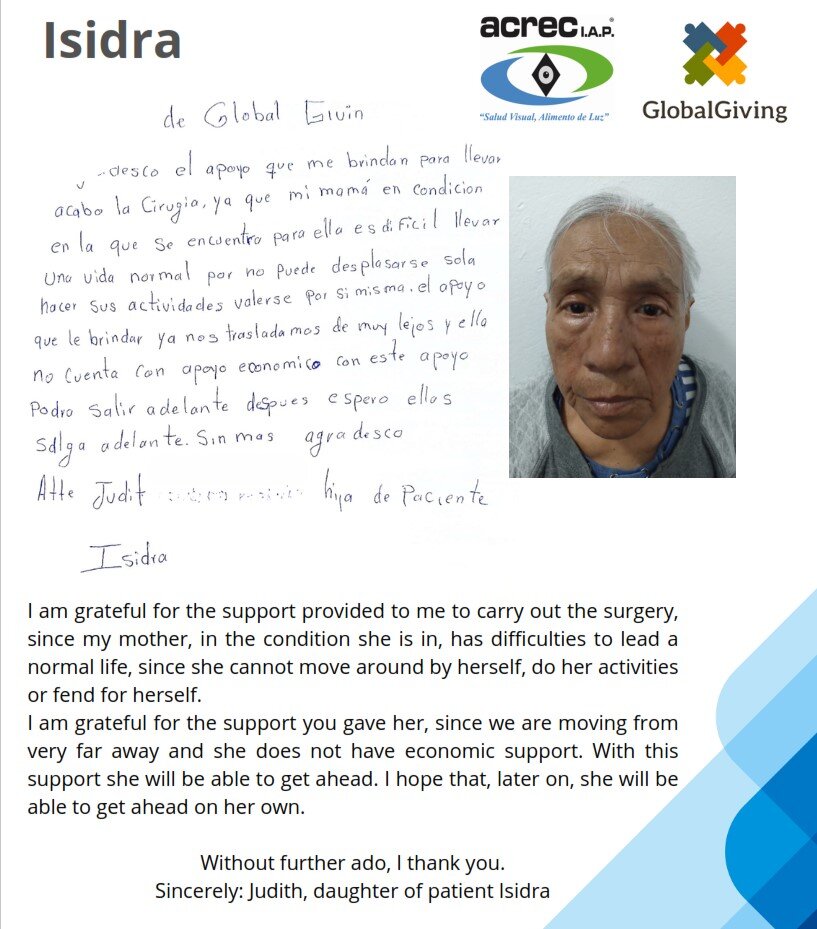 Isidra
acrec I.A.P.
"Salud Visual, Alimento de Luz"
GlobalGiving
de Global Givin
desco el apoyo que me brindan para llevar
acabo la Cirugia, ya que mi mamá en condicion
en la que se encuentra para ella es dificil llevar
una vida normal por no puede desplasarse sola
hacer sus actividades valerse por si misma. el apoyo
que le brindar ya nos trasladamos de muy lejos y ella
no cuenta con apoyo economico con este apoyo
Podra salir adelante despues espero ellos
salga adelante. Sin mas agradesco
Atte Judit hija de Paciente
Isidra
I am grateful for the support provided to me to carry out the surgery,
since my mother, in the condition she is in, has difficulties to lead a
normal life, since she cannot move around by herself, do her activities
or fend for herself.
I am grateful for the support you gave her, since we are moving from
very far away and she does not have economic support. With this
support she will be able to get ahead. I hope that, later on, she will be
able to get ahead on her own.
Without further ado, I thank you.
Sincerely: Judith, daughter of patient Isidra